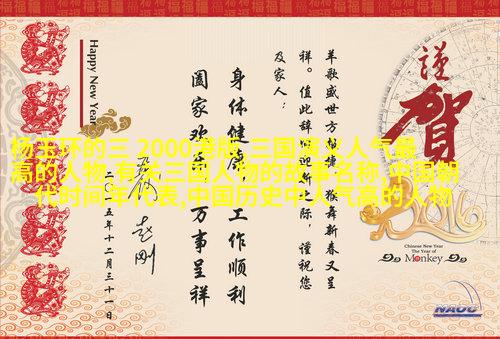 杨玉环的三 2000港版,三国演义人气最
高的人物,有关三国人物的故事名称,中国朝
代时间年代表,中国历史中人气高的人物
謹賀
2016
Chinese New Year
The Year of
Monkey
NAOC
羊歌盛世方
捷,猴舞新春又呈
祥。值此辞旧迎新之际,谨祝您
及家人:
身体健康,工作顺利
阖家欢乐,万事呈祥
二〇一五年十二月三十一日
Happy New Year